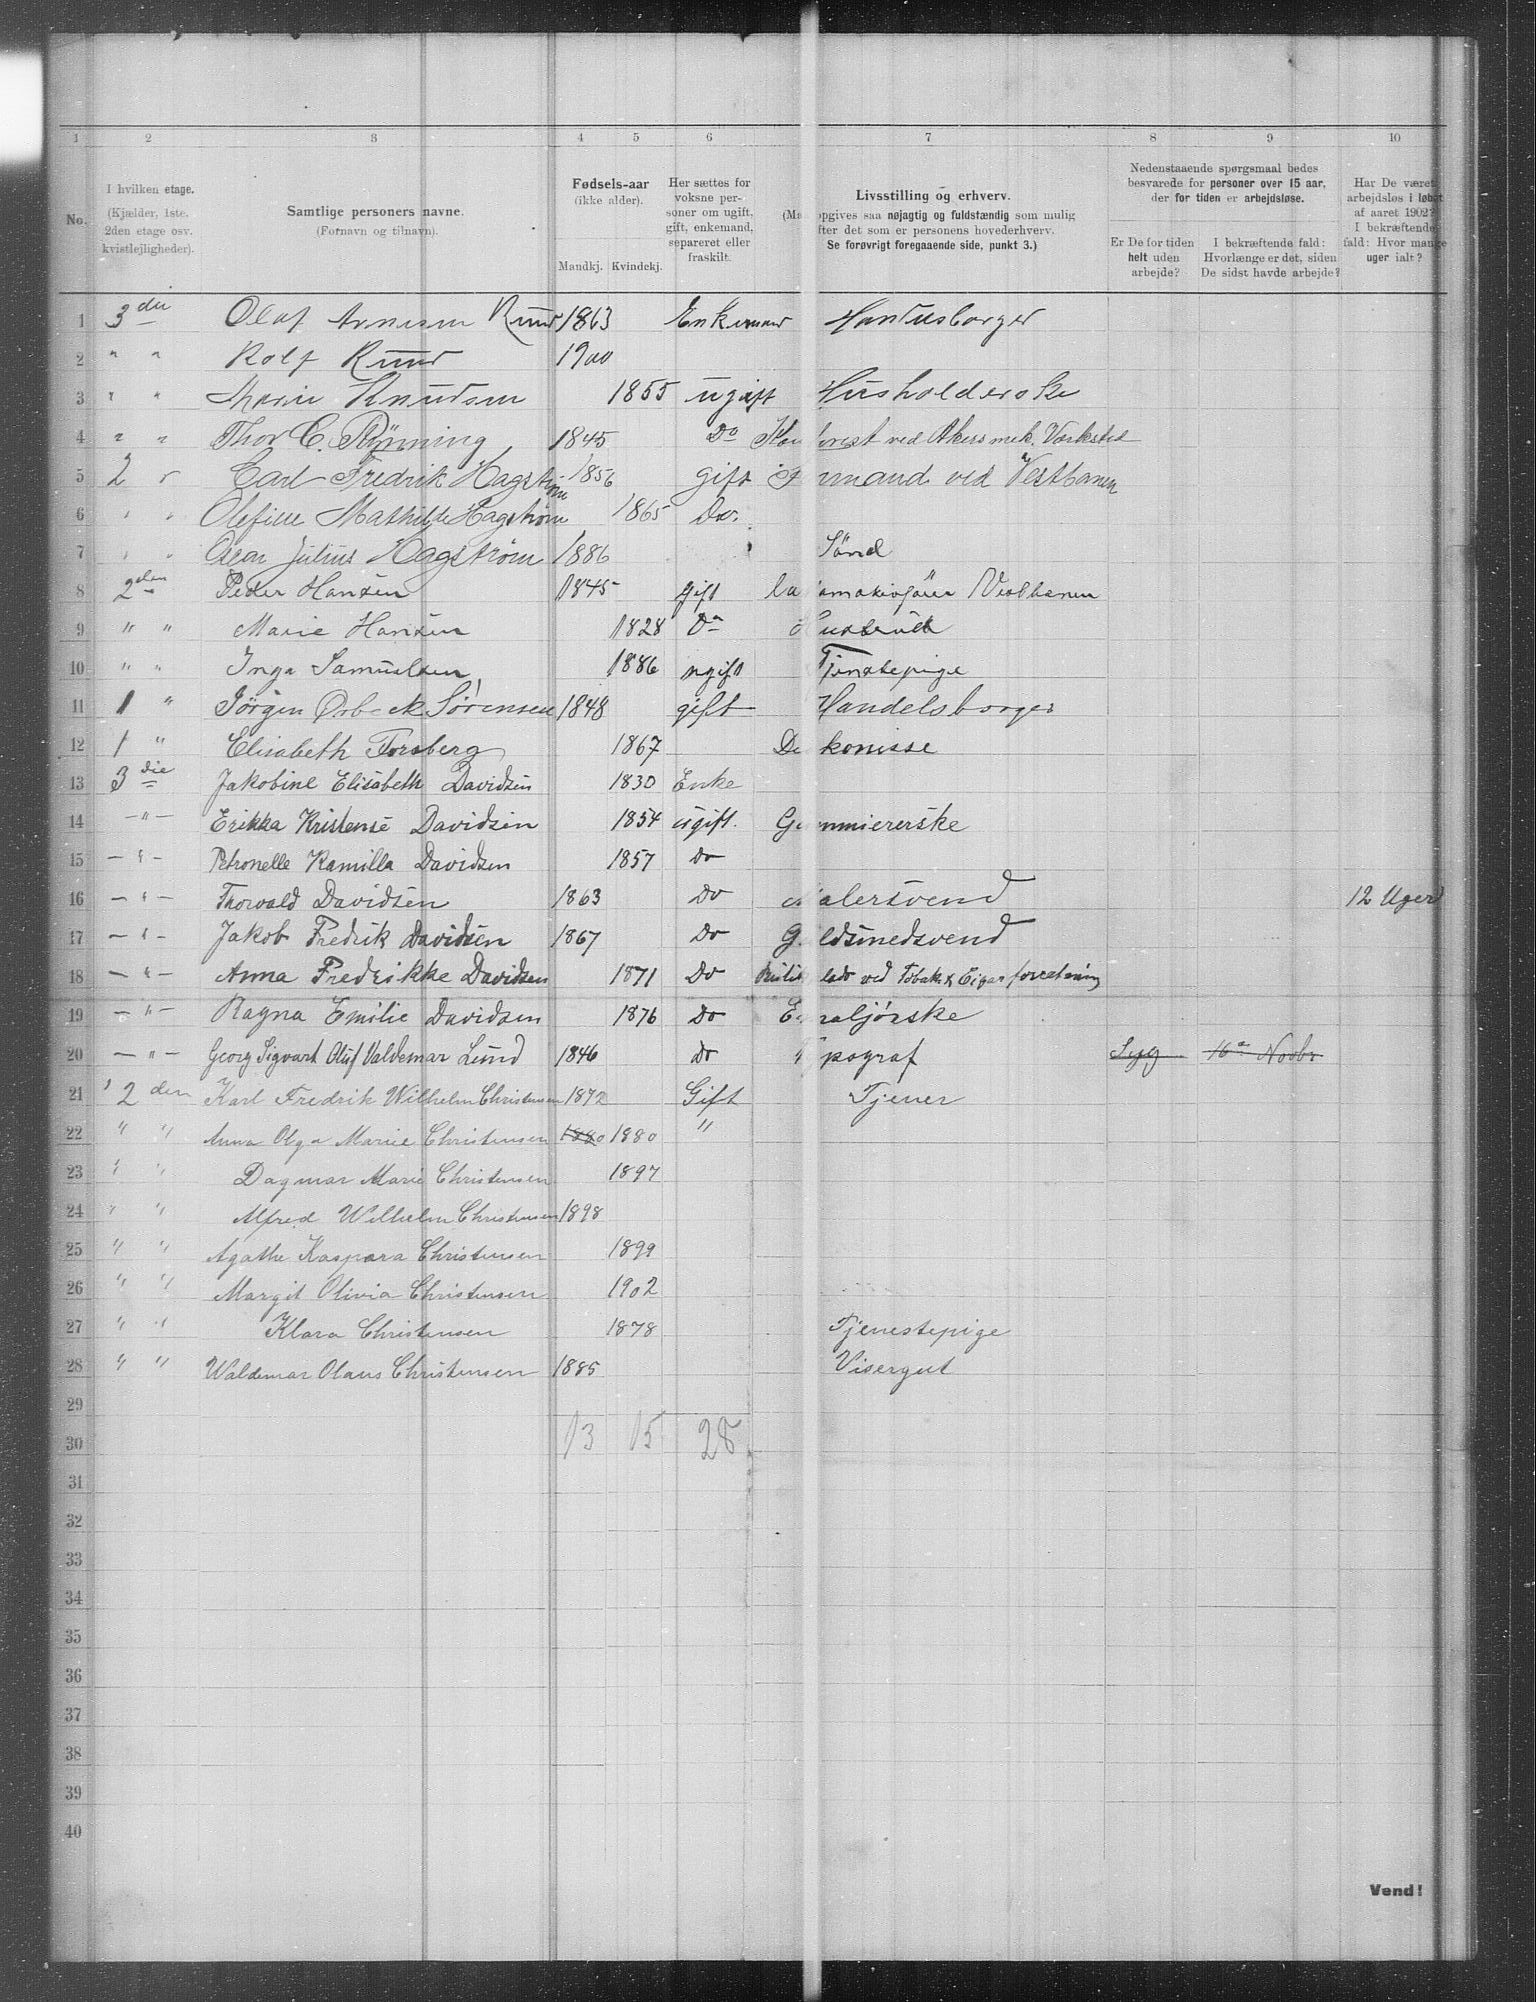 1 2 3 4 5 6 7 8 9 10
No.
I hvilken etage.
(Kjælder, 1ste.
2den etage osv.
kvistlejligheder).
Samtlige personers navne.
(Fornavn og tilnavn).
Fødsels-aar
(ikke alder).
Mandkj. Kvindekj.
Her sættes for
voksne per-
soner om ugift,
gift, enkemand,
separeret eller
fraskilt.
Livsstilling og erhverv.
opgives saa nøjagtig og fuldstændig som mulig
fter det som er personens hovederhverv.
Se forøvrigt foregaaende side, punkt 3.)
Nedenstaaende spørgsmaal bedes
besvarede for personer over 15 aar,
der for tiden er arbejdsløse.
Er De for tiden
helt uden
arbejde?
I bekræftende fald:
Hvorlænge er det, siden
De sidst havde arbejde?
Har De været
arbejdsløs i løbet
af aaret 1902?
I bekræftende
fald: Hvor mange
uger ialt?
1 3 die Olaf Arnesen Ruud 1863 Enkemand Handelsborger
2 " " Rolf Ruud 1900
3 " " Marie Knudsen 1855 ugift Husholderske
4 " " Thor C. Rynning 1845 Do ved Akers mek. Værksted
5 2 " Carl Fredrik Hagstrøm 1856 gift Formand ved Vestbanen
6 " " Mathilde Hagstrøm 1865 Do.
7 " " Oscar Julius Hagstrøm 1886
8 2 den Peder Hansen 1845 gift Vestbanen
9 " " Marie Hansen 1828 Do
10 " " Inga Samuelsen 1886 ugift Tjenestepige
11 1 " Jørgen Ørbeck Sørensen 1848 gift Handelsborger
12 1 " Elisabeth Forsberg 1867 De konisse
13 3 die Jakobine Elisabeth Davidsen 1830 Enke
14 — " — Erikka Kristense Davidsen 1854 ugift. G mmiererske
15 — " — Petronelle Kamilla Davidsen 1857 Do
16 — " — Thorvald Davidsen 1863 Do Malersvend 12 Uger
17 — " — Jakob Fredrik Davidsen 1867 Do G ldsmedsvend
18 — " — Anna Fredrikke Davidsen 1871 Do ved Tobak & Cigar forretning
19 — " — Ragna Emilie Davidsen 1876 Do
20 — " — Georg Sigvart Oluf Valdemar Lund 1846 Do pograf Syg 16 Novbr
21 2 den Karl Fredrik Wilhelm Christensen 1872 Gift Tjener
22 " " Anna Olga Marie Christensen 1880 1880 "
23 " " Dagmar Marie Christensen 1897
24 " " Alfred Wilhelm Christensen 1898
25 " " Agathe Kaspara Christensen 1899
26 " " Margit Olivia Christensen 1902
27 " " Klara Christensen 1878 Tjenestepige
28 " " Waldemar Olaus Christensen 1885 Visergut
29
13 15 28
30
31
32
33
34
35
36
37
38
39
40
Vend!